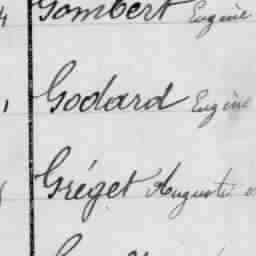 Gombert Eugène
Godard Eugène
Gréget Auguste